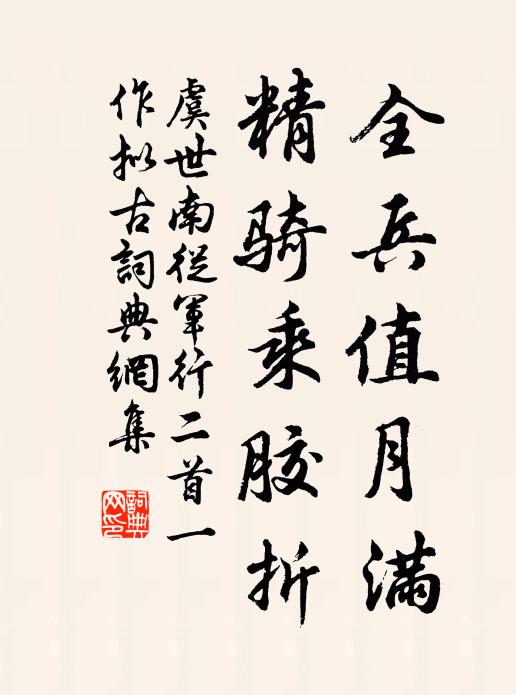 全兵值月满
精骑乘胶折
虞世南從軍行二首一
作拟古詞典網集
詞典网印